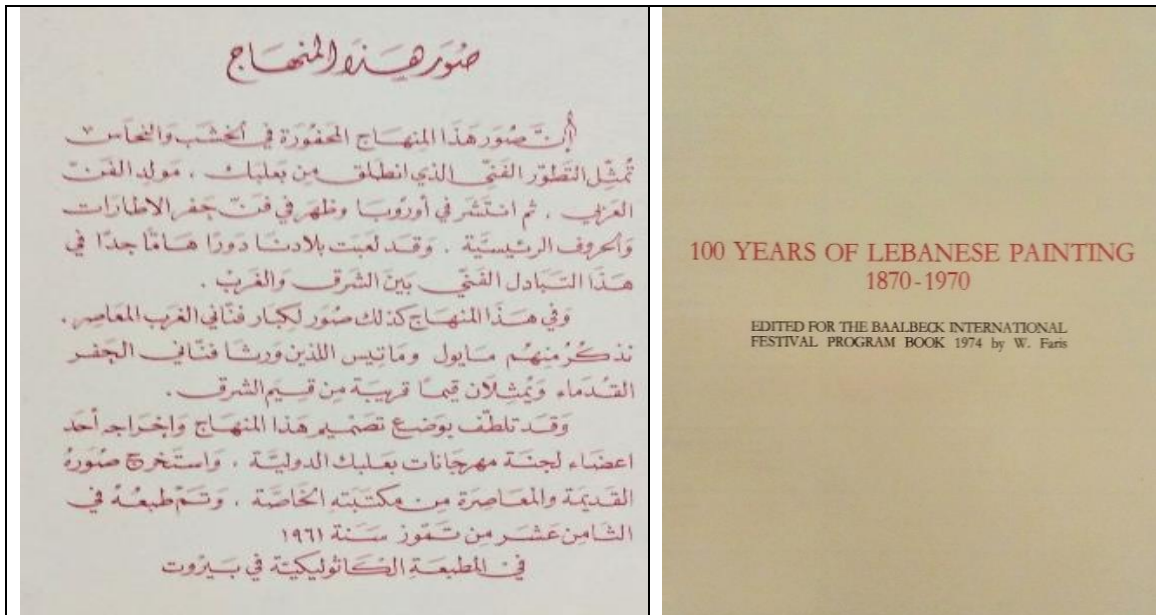 صُوَر هَذَا المنهَاج
إنَّ صُوَر هَذَا المِنهَاج المحفُورَة في الخشَب وَالنحَاسْ
تُمثِّل التَطوّر الفَنّي الذي انطلَق من بَعلبَك ، مَولد الفَنّ
العَرَبي ، ثم انتَشَر في أوروبَا وظهَر في فنّ حَفر الاطارَات
وَالحرُوف الرئيسيَّة . وَقد لعبَت بلادنَا دَورًا هَامًّا جدًا في
هَذَا التبَادل الفَنّي بَينَ الشرق وَالغَربْ .
وَفي هَذَا المنهَاج كذلك صُوَر لكبَار فنَّاني الغَرب المعَاصِر .
نذكُر منهُم مَايول وَمَاتيس اللذين وَرثَا فنَّاني الحَفر
القُدمَاء وَيُمثِّلان قيَمًا قريبَة من قيَم الشرق .
وَقَد تلطّف بوَضع تصْميم هذا المنهَاج وَاخرَاجه أحَد
اعضَاء لجنَة مهرجَانات بعَلبك الدوليَّة . وَاستَخرج صُورَهُ
القَديمَة والمعَاصِرَة من مكتبَته الخاصَّة . وَتَمّ طبعُهُ في
الثامن عَشَر من تَمّوز سَنَة ١٩٦١
في المَطبعَة الكَاثوليكيَّة في بَيرُوت
100 YEARS OF LEBANESE PAINTING
1870-1970
EDITED FOR THE BAALBECK INTERNATIONAL
FESTIVAL PROGRAM BOOK 1974 by W. Faris